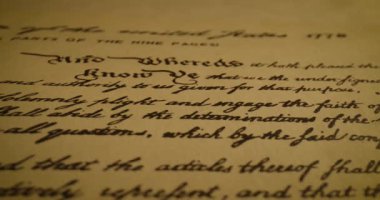 of the united States 1778
PARTS OF THE NINE PAGES
And Whereas it hath pleased the
Know Ye that we the under
and authority to us given for that purpose,
solemnly plight and engage the faith of
shall abide by the determinations of the
all questions, which by the said
and that the articles thereof shall
represent, and that